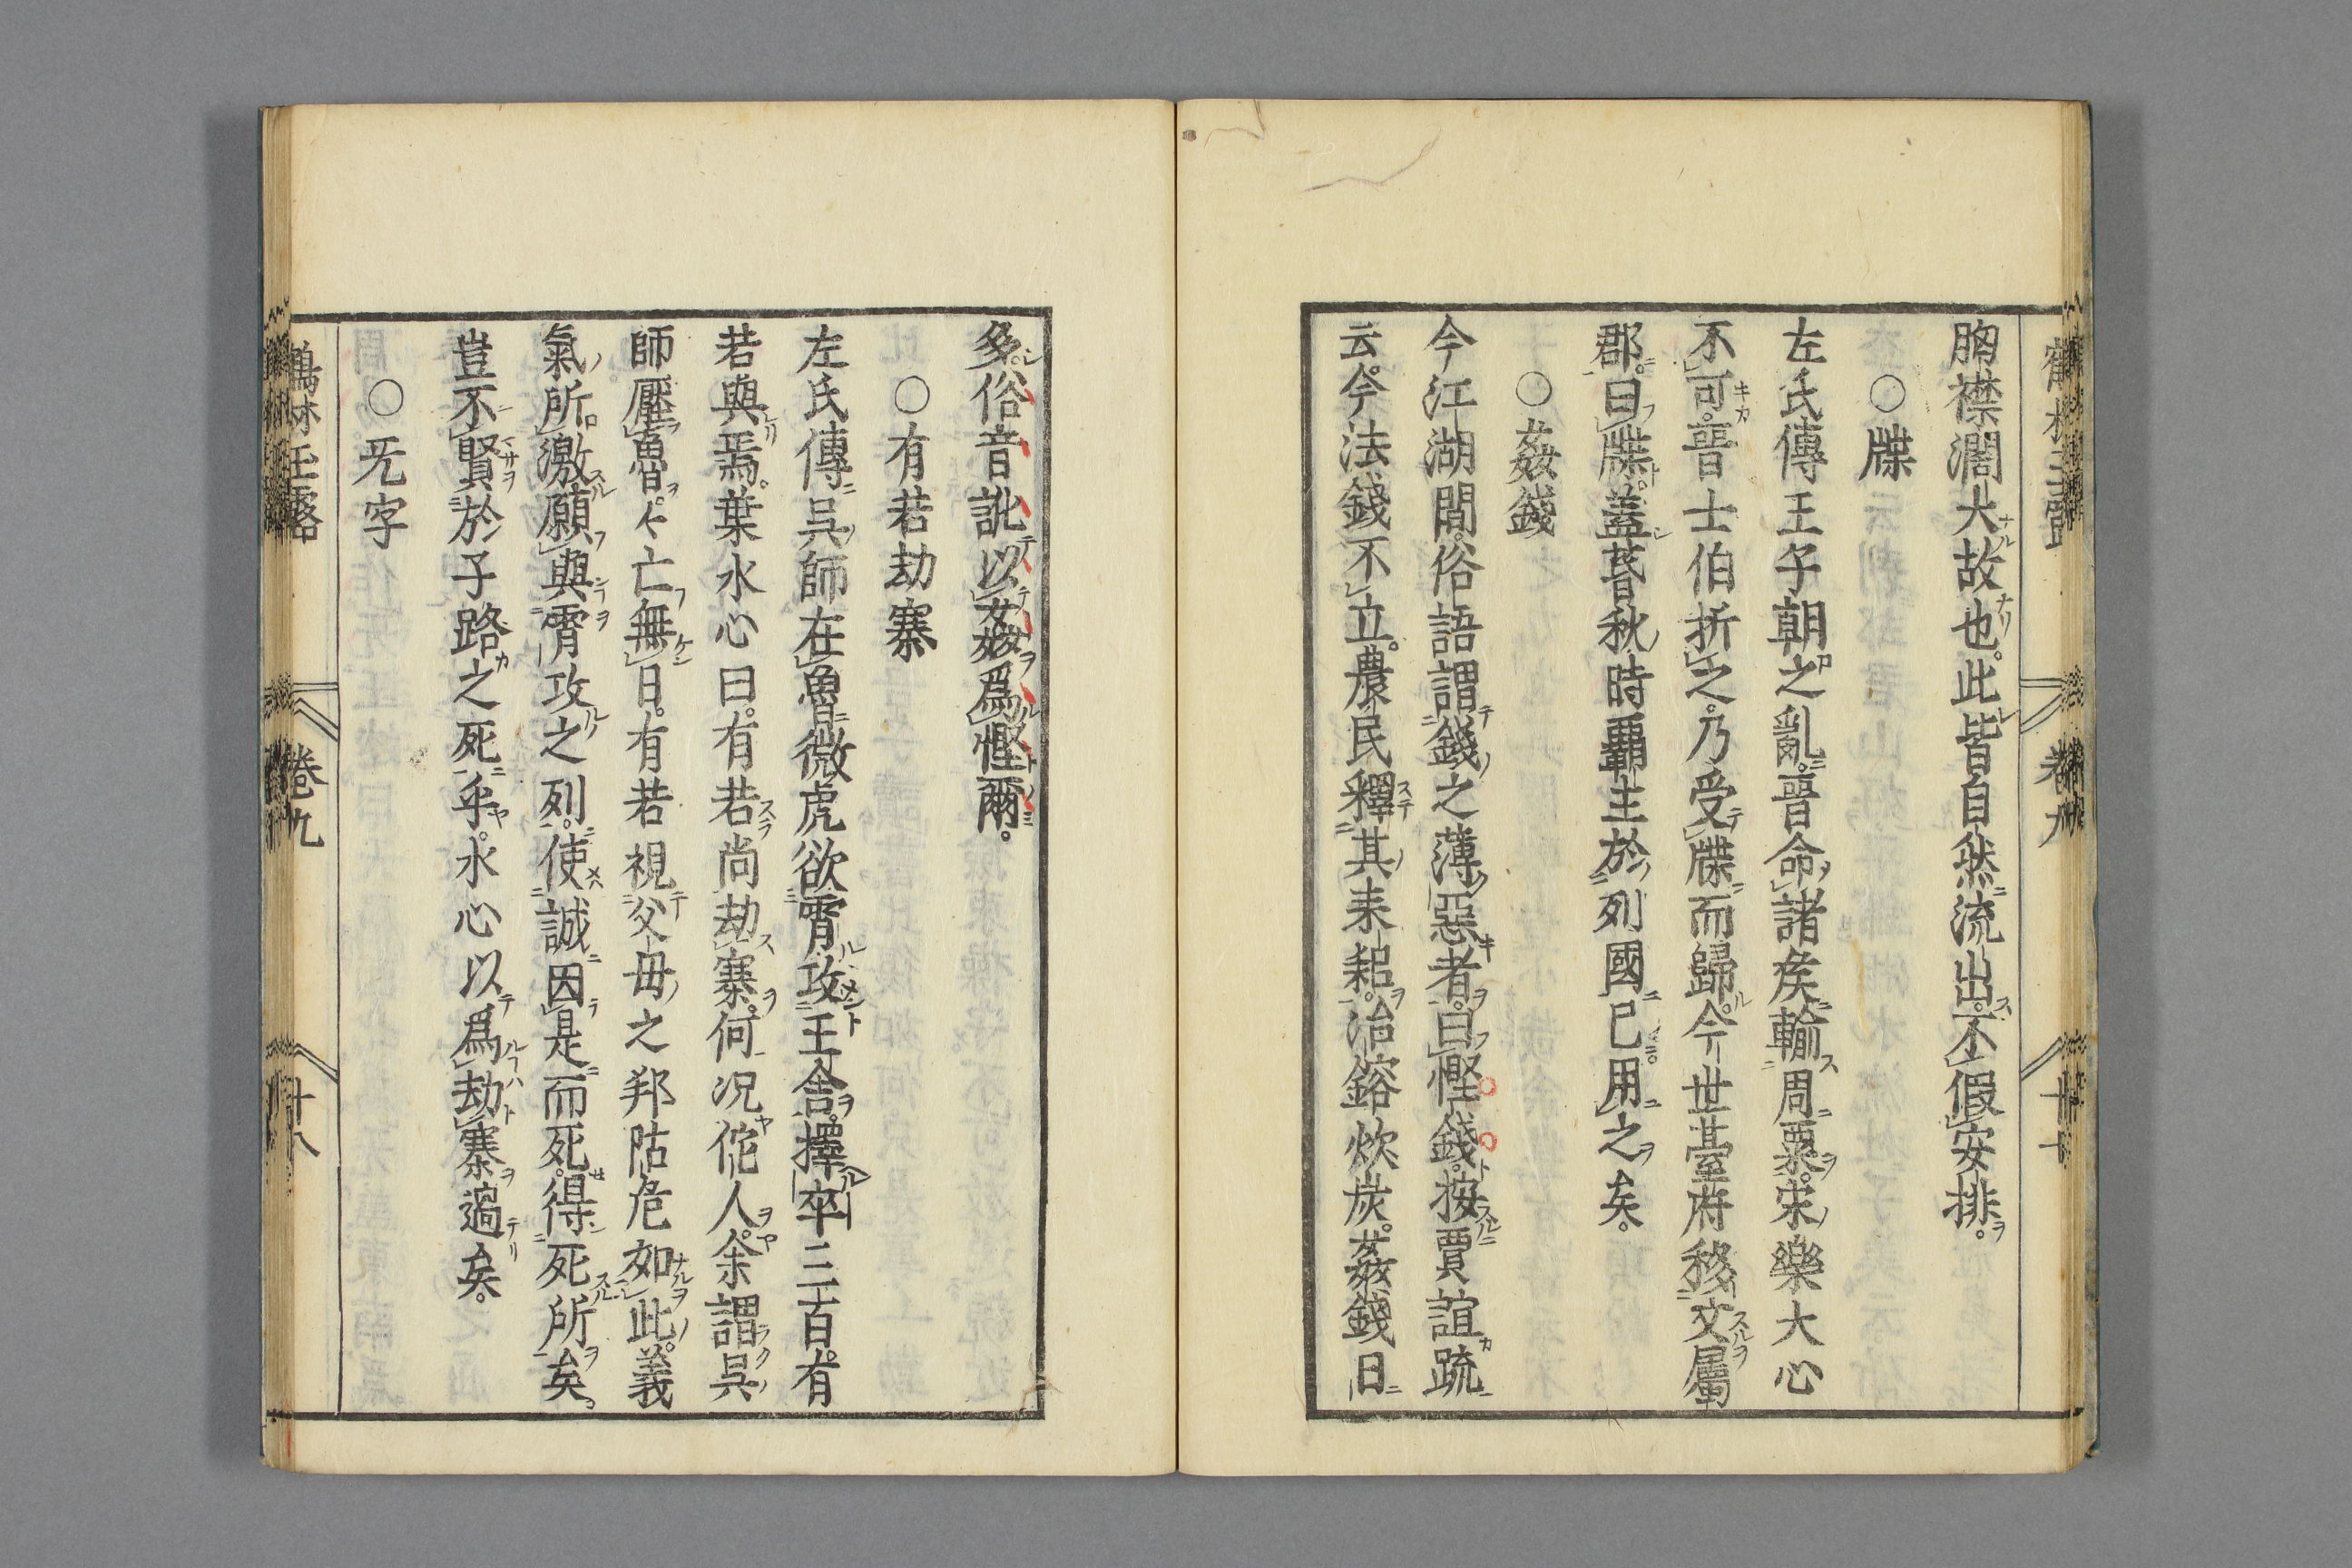 胸襟濶大故也。此皆自然流出。不假安排。
○牒
左氏傳王子朝之亂。晉命諸矦輸周粟。宋樂大心
不可。晉士伯折之。乃受牒而歸。今世臺府移文屬
郡。曰牒。蓋昔秋時覇主於列國已用之矣。
○姦錢
今江湖間。俗語謂錢之薄惡者。曰慳錢。按賈誼疏
云。今法錢不立。農民釋其耒耜。冶鎔炊炭。姦錢日
多。俗音訛以姦爲慳爾。
○有若劫寨
左氏傳吳師在魯。微虎欲宵攻王舍。擇卒三百。有
若與焉。葉水心曰。有若尚劫寨。何况佗人。余謂吳
師壓魯。々亡無日。有若視父母之邦阽危如此。義
氣所激。願與宵攻之列。使誠因是而死。得死所矣。
豈不賢於子路之死乎。水心以爲劫寨過矣。
○旡字
鶴林玉露
卷九
十八